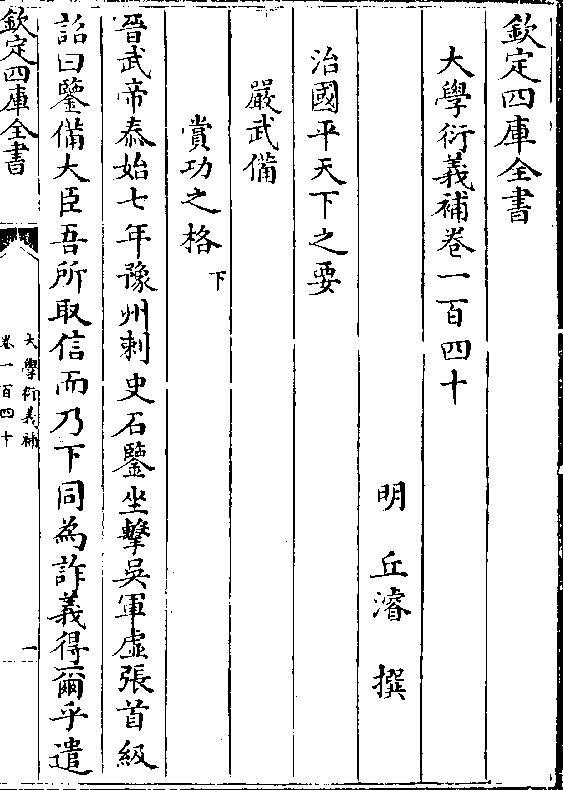 欽定四庫全書
大學衍義補卷一百四十
明 丘濬 撰
治國平天下之要
嚴武備
賞功之格下
晉武帝泰始七年豫州刺史石鑒坐擊吳軍虛張首級
詔曰鑒備大臣吾所取信而乃下同為詐義得爾乎遣
欽定四庫全書
大學衍義補
卷一百四十
一